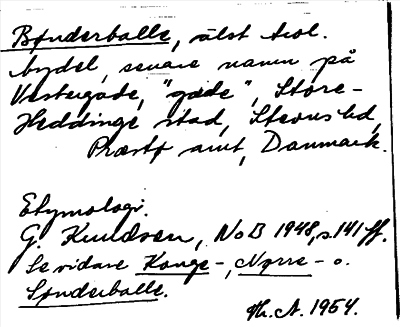 Bønderballe, älst trol.
bydel, senare namn på
Vestergade, "gade", Store-
Heddinge stad, Stevns hd,
Præstø amt, Danmark.
Etymologi.
G. Knudsen, NoB 1948, s. 141 ff.
Se vidare Konge-, Nørre- o.
Sønderballe.
Th. A. 1954.